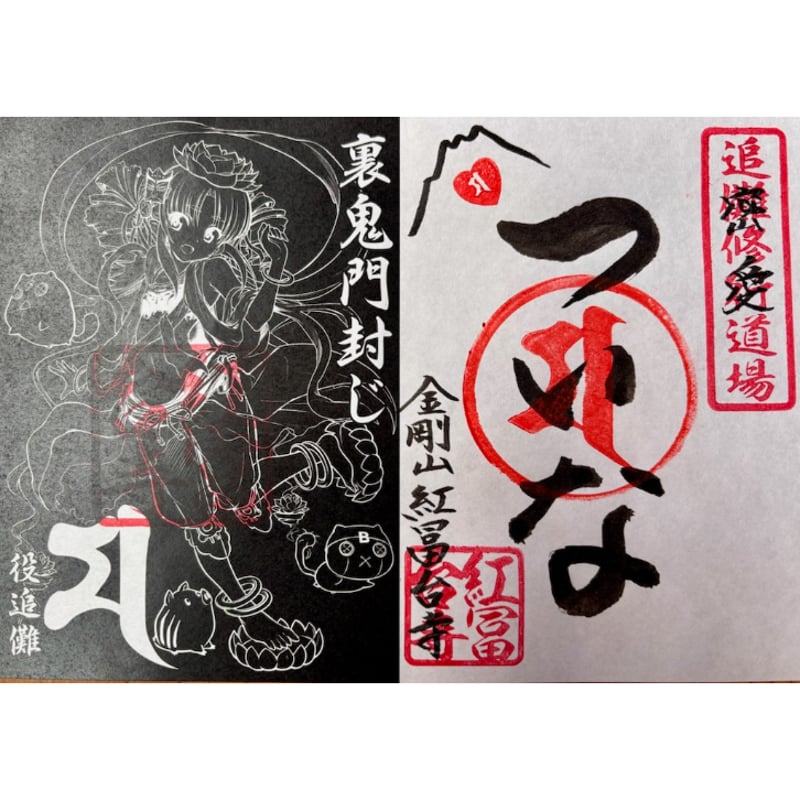 裏鬼門封じ
役追儺
B
追儺修行道場
ついな
金剛山 紅冨台寺
紅冨